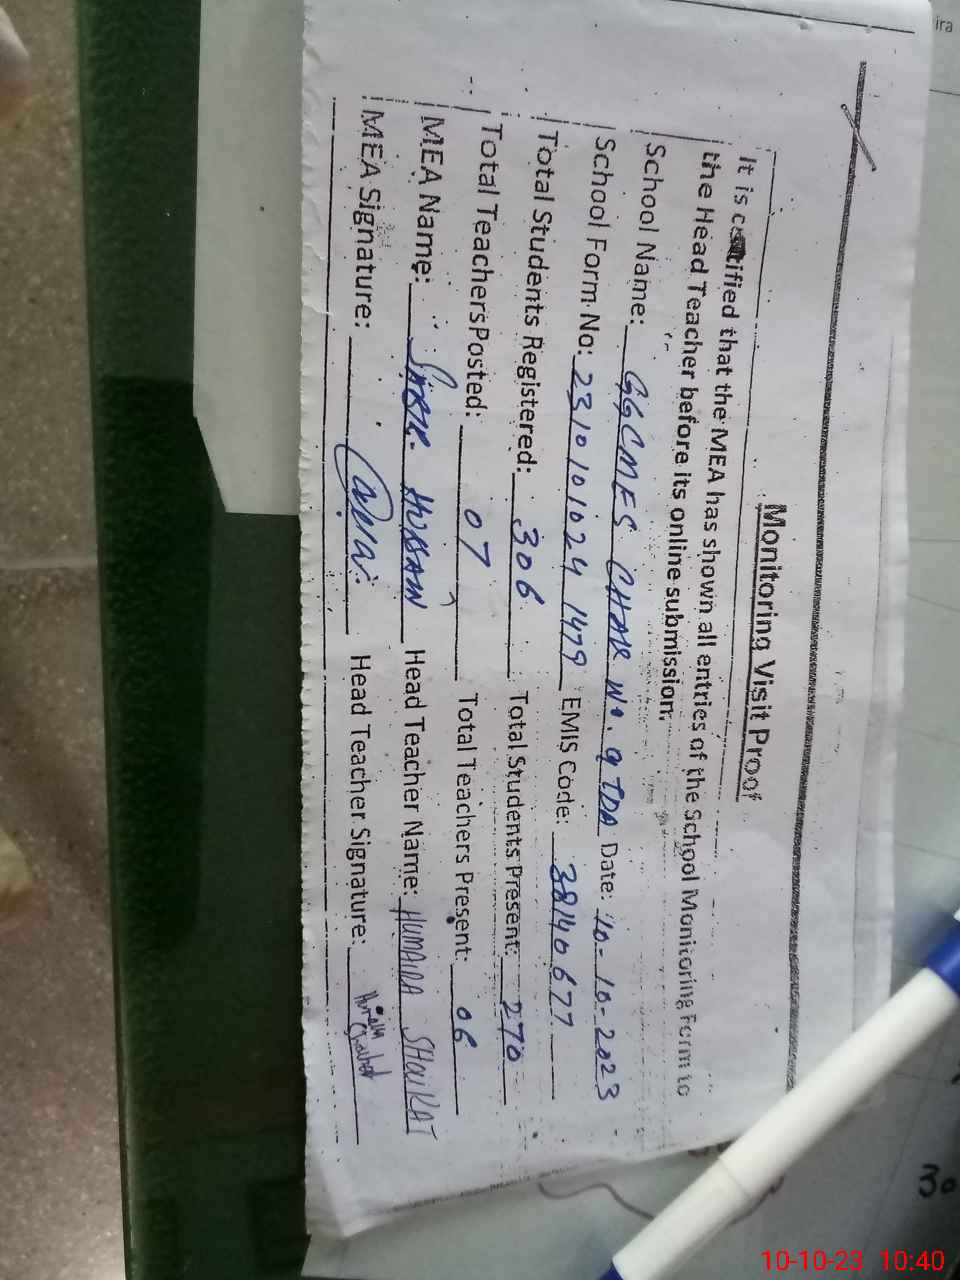 Monitoring Visit Proof
It is certified that the MEA has shown all entries of the School Monitoring Form to
the Head Teacher before its online submission.
School Name: GGCMES CHAK NO. 9 TDA Date: 10-10-2023
School Form No: 2310101024 1479 EMIS Code: 38140677
Total Students Registered: 306 Total Students Present: 270
Total TeachersPosted: 07 Total Teachers Present: 06
MEA Name: SABIR HUSSAIN Head Teacher Name: HUMAIRA SHOUKAT
MEA Signature: Head Teacher Signature:
ira
30
10-10-23 10:40